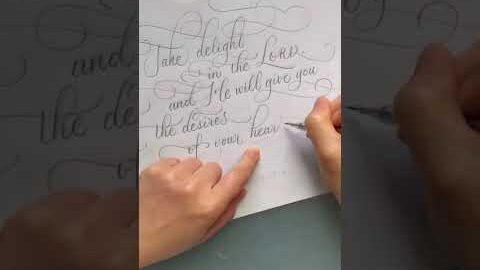 Take delight
in the LORD
and He will give you
the desires
of your hear